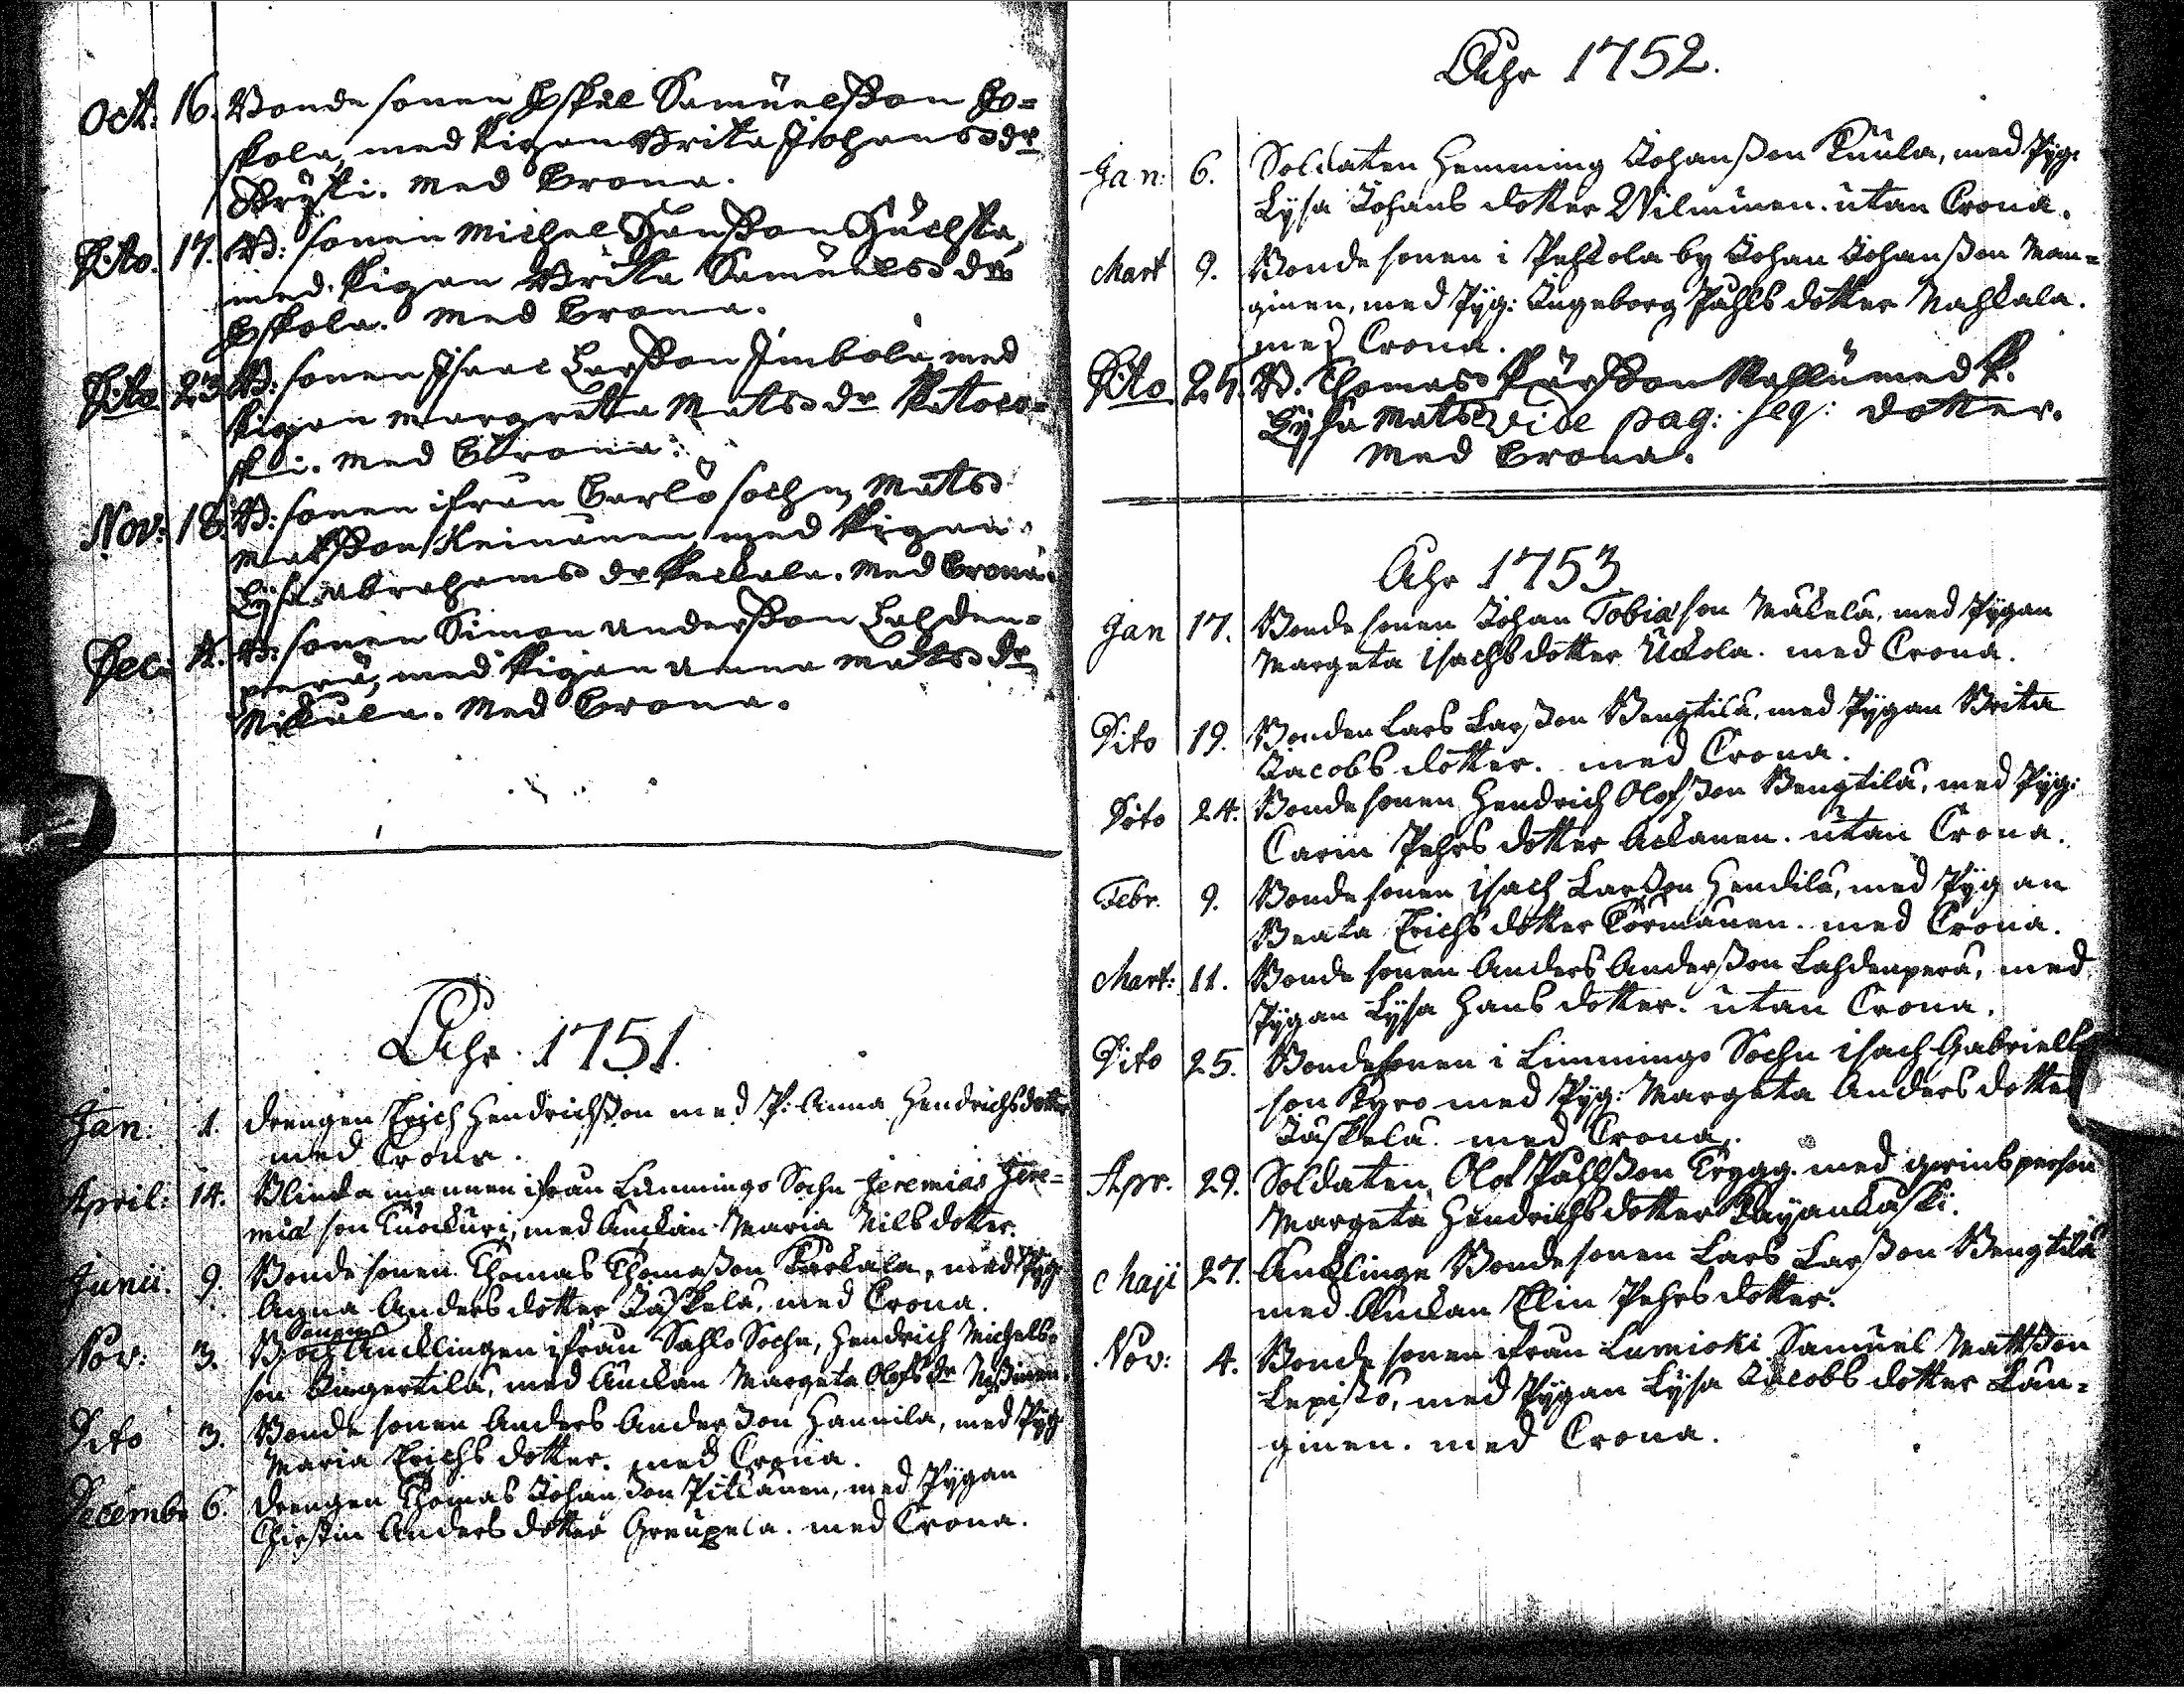 Oct: 16. Bonde sonen Eskel Samuelsson Es=
kola, med Pigan Brita Johansdr
Brüski. Med Crona.
Dito. 17. B: sonen Michel Hansson Huchta,
med Pigan Brita Samuelsdr
Eskola. Med Crona.
Dito 23 B: sonen Isaac Larsson Jmbola med
Pigan Margreta Matsdr Patoco=
ski. Med Crona.
Nov: 18. B: sonen ifrån Carlö sochn, Mats
Matsson Keinänen, med Pigan
Lÿsa Abrahamsdr Peckala. Med Crona.
Dec: 4. B: sonen Simon Andersson Lahden=
perä, med Pigan Anna Matsdr
Nikula. Med Crona.
Åhr 1751.
Jan: 1. Drengen Erich Hendrichsson med P: Anna Hendrichsdotter
med Crona.
April: 14. Blinda mannen ifrån Limmingo Sochn Jeremias Jere=
miæ son Tuockuri, med Änckian Maria Nils dotter.
Junii. 9. Bonde sonen Thomas Thomasson Parkala, med Pÿg:
Agna Anders dotter Jäskelä, med Crona.
Sonen
Nov: 3. B: och Äncklingen ifrån Sahlo Sochn, Hendrich Michels=
son Ängeslilä, med Änckan Margeta Olofs dr Nissinen.
Dito 3. Bonde sonen Anders Andersson Hannila, med Pÿg:
Maria Erichs dotter. med Crona.
Decembr 6. Drengen Thomas Johansson Pitkänen, med Pÿgan
Chirstin Anders dotter Greupela. med Crona.
Åhr 1752.
Jan: 6. Soldaten Hemming Johansson Kuula, med Pÿg:
Lÿsa Johans dotter Wilminen. utan Crona.
Mart 9. Bonde sonen i Pehkola by Johan Johansson Man=
ginen, med Pÿg: Ingeborg Påhls dotter Mahkala.
med Crona.
Dito 25. B. Thomas Pärsson Mallu med P.
Lÿsa Mats vide pag: seq: dotter.
Med Crona.
Åhr 1753
Jan 17. Bonde sonen Johan Tobiæ son Mäkelä, med Pÿgan
Margeta Isachs dotter Uckola. med Crona.
Dito 19. Bonden Lars Larsson Bengtilä, med Pÿgan Brita
Jacobs dotter. med Crona.
Dito 24. Bonde sonen Hendrich Olofsson Bengtilä, med Pÿg:
Carin Pehrs dotter Ackanen. utan Crona.
Febr. 9. Bonde sonen Isach Larsson Hendilä, med Pÿgan
Beata Erichs dotter Törmänen. med Crona.
Mart: 11. Bonde sonen Anders Andersson Lahdenperä, med
Pÿgan Lÿsa Hans dotter. utan Crona.
Dito 25. Bonde sonen i Limmingo Sochn Isach Gabriells
son Kyro med Pÿg: Margeta Anders dotter
Jäskelä. med Crona.
Apr. 29. Soldaten Olof Påhlsson Trygg. med qwinsperson
Margeta Hendrichs dotter Kayankaski.
Maji 27. Äncklinge Bonde sonen Lars Larsson Bengtilä
med Änckan Elin Pehrs dotter.
Nov: 4. Bonde sonen ifrån Lumioki Samuel Mattsson
Lepistö, med Pÿgan Lÿsa Jacobs dotter Lau=
ginen. med Crona.